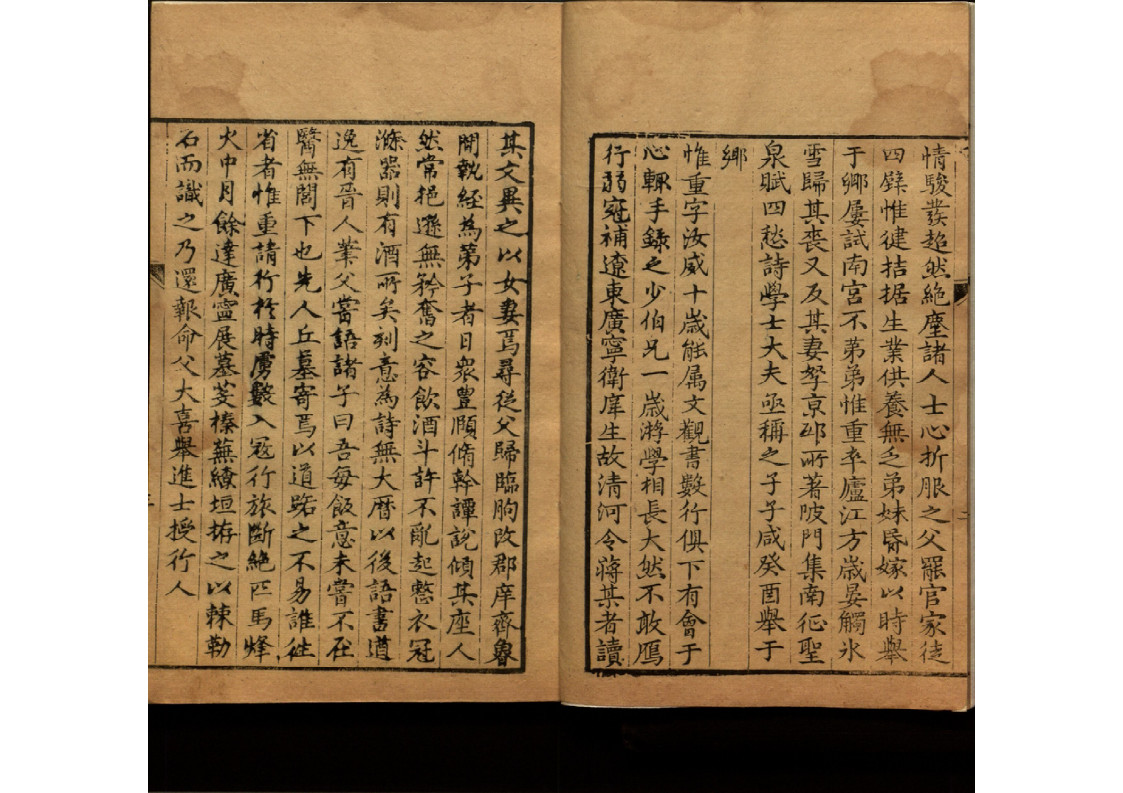 情駿發超然絶塵諸人士心折服之父罷官家徒
四壁惟健拮据生業供養無乏弟妹昏嫁以時舉
于鄉屢試南宮不第弟惟重卒廬江方歲晏觸氷
雪歸其喪又及其妻孥京邸所著陂門集南征聖
泉賦四愁詩學士大夫亟稱之子子咸癸酉舉于
鄉
惟重字汝威十歲能属文觀書數行俱下有會于
心輒手錄之少伯兄一歲游學相長大然不敢鴈
行弱冠補遼東廣寧衛庠生故清河令蔣某者讀
其文異之以女妻焉尋從父歸臨朐改郡庠齊魯
間執經為弟子者日衆豐頤脩幹譚說傾其座人
然常挹遜無矜奮之容飲酒斗許不亂起整衣冠
滌器則有酒所矣刻意為詩無大曆以後語書遒
逸有晉人業父嘗語諸子曰吾每飯意未嘗不在
醫無閭下也先人丘墓寄焉以道路之不易誰徃
省者惟重請行於時虜數入寇行旅斷絶匹馬烽
火中月餘達廣寧展墓芟榛蕪繚垣栫之以棘勒
石而識之乃還報命父大喜舉進士授行人